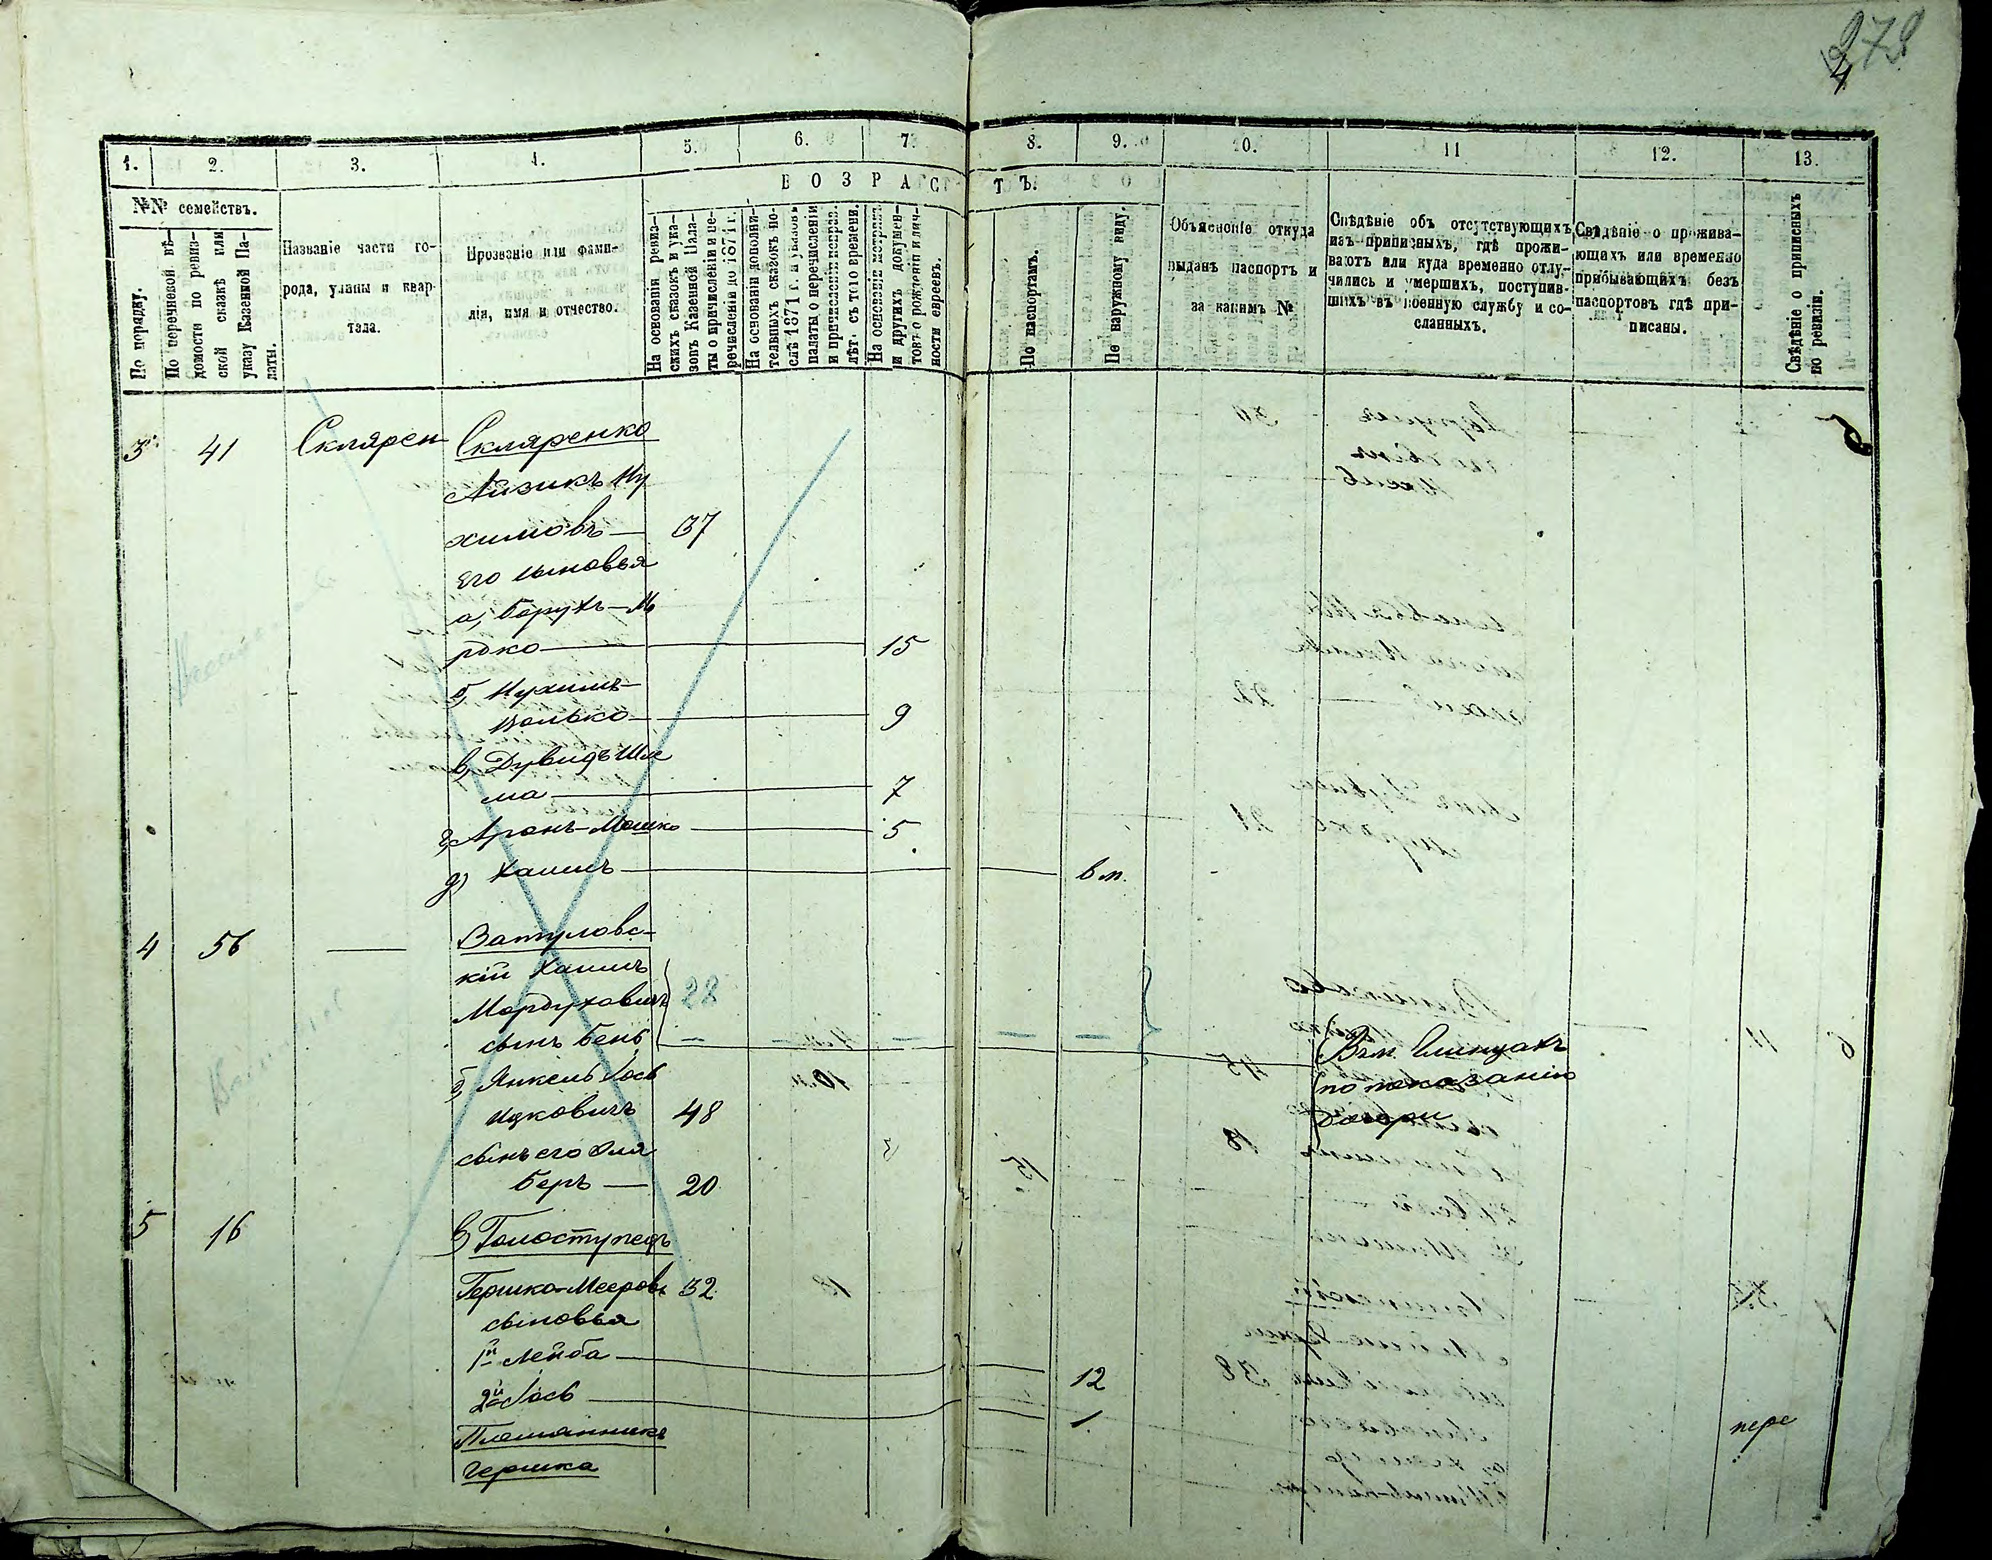 272
4
1.
2.
3.
4.
5.
6.
7.
8.
9.
10.
11
12.
13.
ВОЗРАСТЪ.
№№ семействъ.
По порядку.
По перечневой вѣ-
домости по ревиз-
ской сказкѣ или
указу Казенной Па-
латы.
Названіе части го-
рода, улицы и квар-
тала.
Прозваніе или фами-
лія, имя и отчество.
На основаніи ревиз-
скихъ сказокъ и ука-
зовъ Казенной Пала-
ты о причисленіи и пе-
речисленіи до 1874 г.
На основаніи дополни-
тельныхъ сказокъ по-
слѣ 1874 г. и указовъ
палаты о перечисленіи
и причисленіи исправ.
лѣт. съ того времени.
На основаніи метрикъ
и другихъ докумен-
товъ о рожденіи и лич-
ности евреевъ.
По паспортамъ.
По наружному виду.
Объясненіе откуда
выданъ паспортъ и
за какимъ №
Свѣдѣніе объ отсутствующихъ
изъ приписныхъ, гдѣ прожи-
ваютъ или куда временно отлу-
чились и умершихъ, поступив-
шихъ въ военную службу и со-
сланныхъ.
Свѣдѣніе о прожива-
ющихъ или временно
прибывающихъ безъ
паспортовъ гдѣ при-
писаны.
Свѣдѣніе о приписныхъ
по ревизіи.
3 41 Склярен Скляренко
Айзикъ Ну
химовъ — 37
его сыновья
а, Борухъ — М
рдко — 15
б, Нухимъ-
Волько — 9
в, Дувидъ Шле
ма — 7
г, Аронъ-Мошко — 5
д) Хаимъ — 6 м.
4 56 — Ватуловс-
кій Хаимъ
Мордуховичъ 28
сынъ Бень
Въ м.
по показанію
б, Янкель Іось
Ицковичъ 48
сынъ его Эля
Беръ — 20
5 16 в) Голоступецъ
Гершко-Мееровъ 32
сыновья
1й Лейба — 12
2й Іось — 1
Племянникъ
Гершка
пере